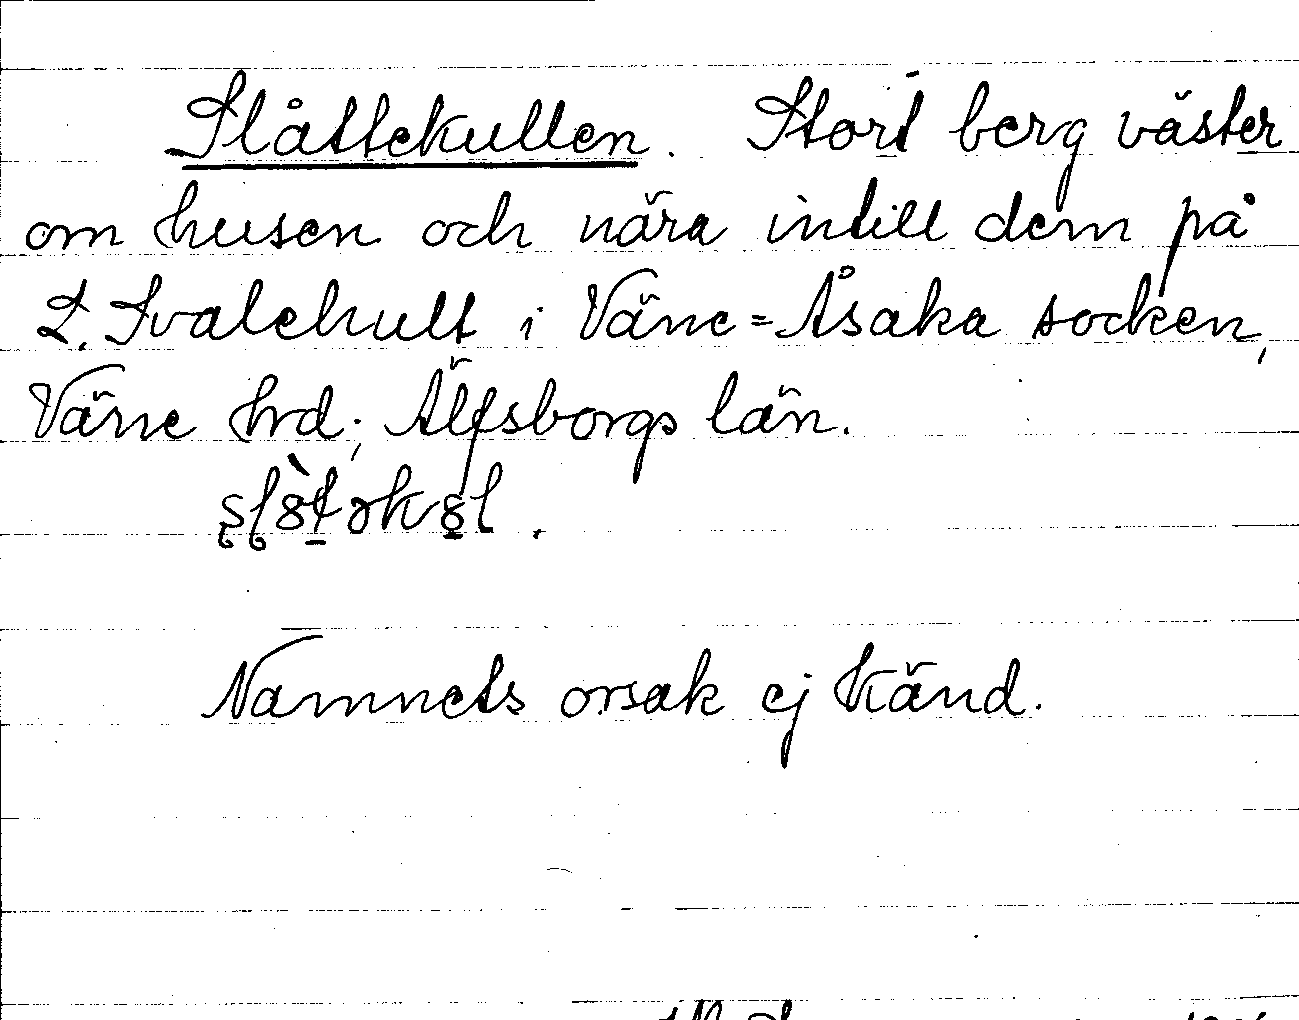 Slåttekullen. Stort berg väster
om husen och nära intill dem på
L. Svalehult i Väne=Åsaka socken,
Väne hrd; Älfsborgs län.
Namnets orsak ej känd.